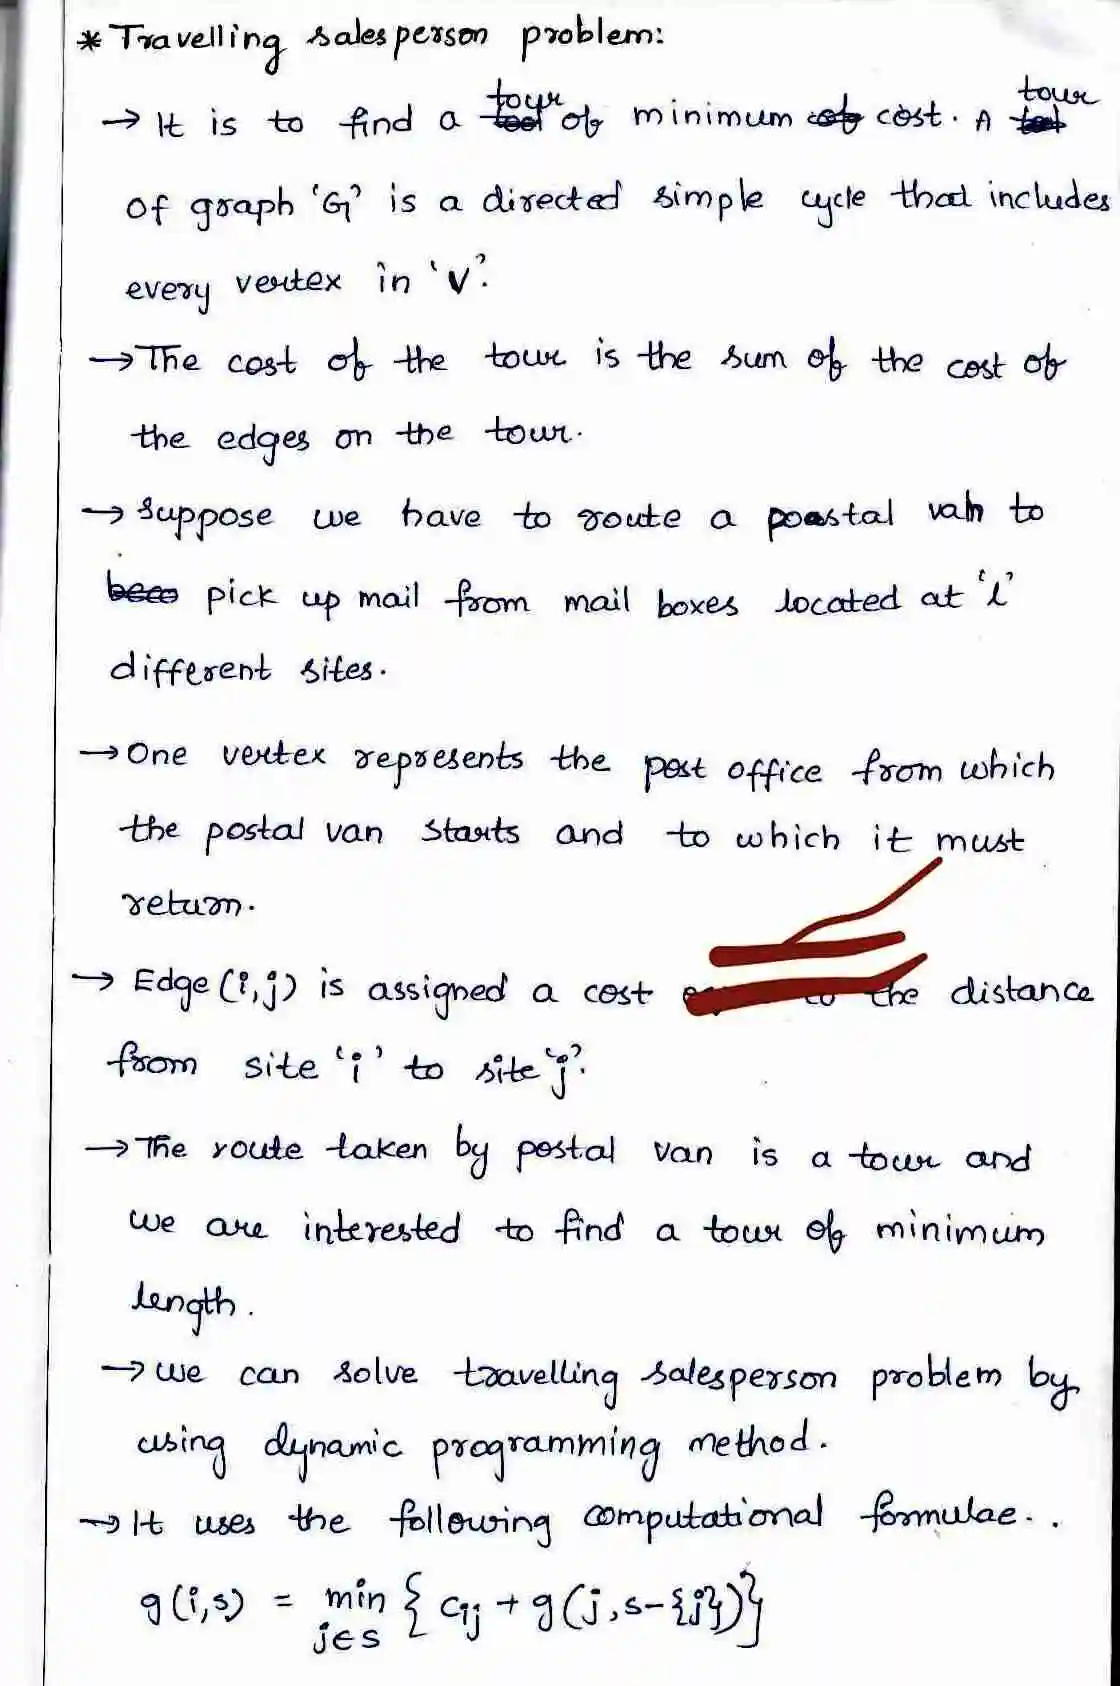 * Travelling salesperson problem:
→ It is to find a tour of minimum cost. A tour
of graph 'G' is a directed simple cycle that includes
every vertex in 'V'.
→ The cost of the tour is the sum of the cost of
the edges on the tour.
→ Suppose we have to route a postal van to
pick up mail from mail boxes located at 'i'
different sites.
→ One vertex represents the post office from which
the postal van starts and to which it must
return.
→ Edge (i,j) is assigned a cost to the distance
from site 'i' to site 'j'.
→ The route taken by postal van is a tour and
we are interested to find a tour of minimum
length.
→ we can solve travelling salesperson problem by
using dynamic programming method.
→ It uses the following computational formulae..
g(i,s) = min { cij + g(j,s-{j})}
j∈s